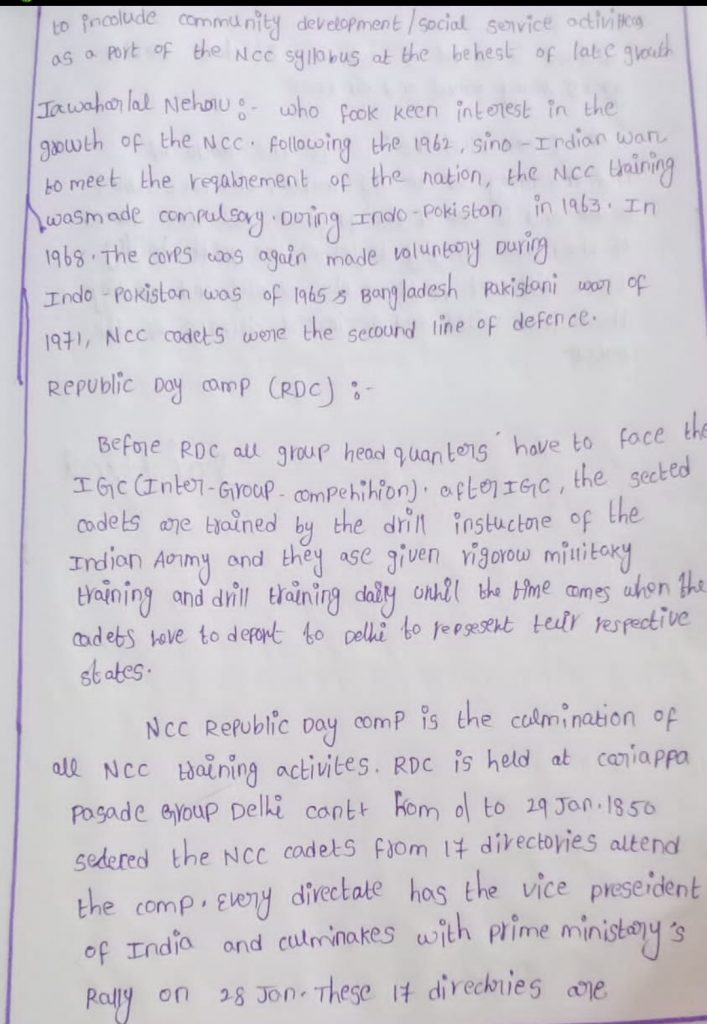 to incolude community development/social service activities
as a part of the NCC syllabus at the behest of late growth
Jawaharlal Nehru :- who fook keen interest in the
growth of the NCC. Following the 1962, sino-Indian war
to meet the reqairement of the nation, the NCC training
wasmade compulsory. During Indo-pakistan in 1963. In
1968. The corps was again made voluntary During
Indo-Pakistan was of 1965 & Bangladesh Pakistani war of
1971, NCC cadets were the secound line of defence.
Republic Day camp (RDC) :-
Before RDC all group head quarters have to face the
IGC (Inter-Group-compehihion). after IGC, the sected
cadets are trained by the drill instuctore of the
Indian Army and they ase given rigorow millitary
training and drill training daily unhil the time comes when the
cadets have to depart to Delhi to repsesent teuir respective
states.
NCC Republic Day camp is the culmination of
all NCC training activites. RDC is held at cariappa
pasade Group Delhi cantt from 01 to 29 Jan. 1850
sedered the NCC cadets from 17 directories attend
the camp. Every directate has the vice preseident
of India and culminakes with prime ministary's
Rally on 28 Jan. These 17 directories are